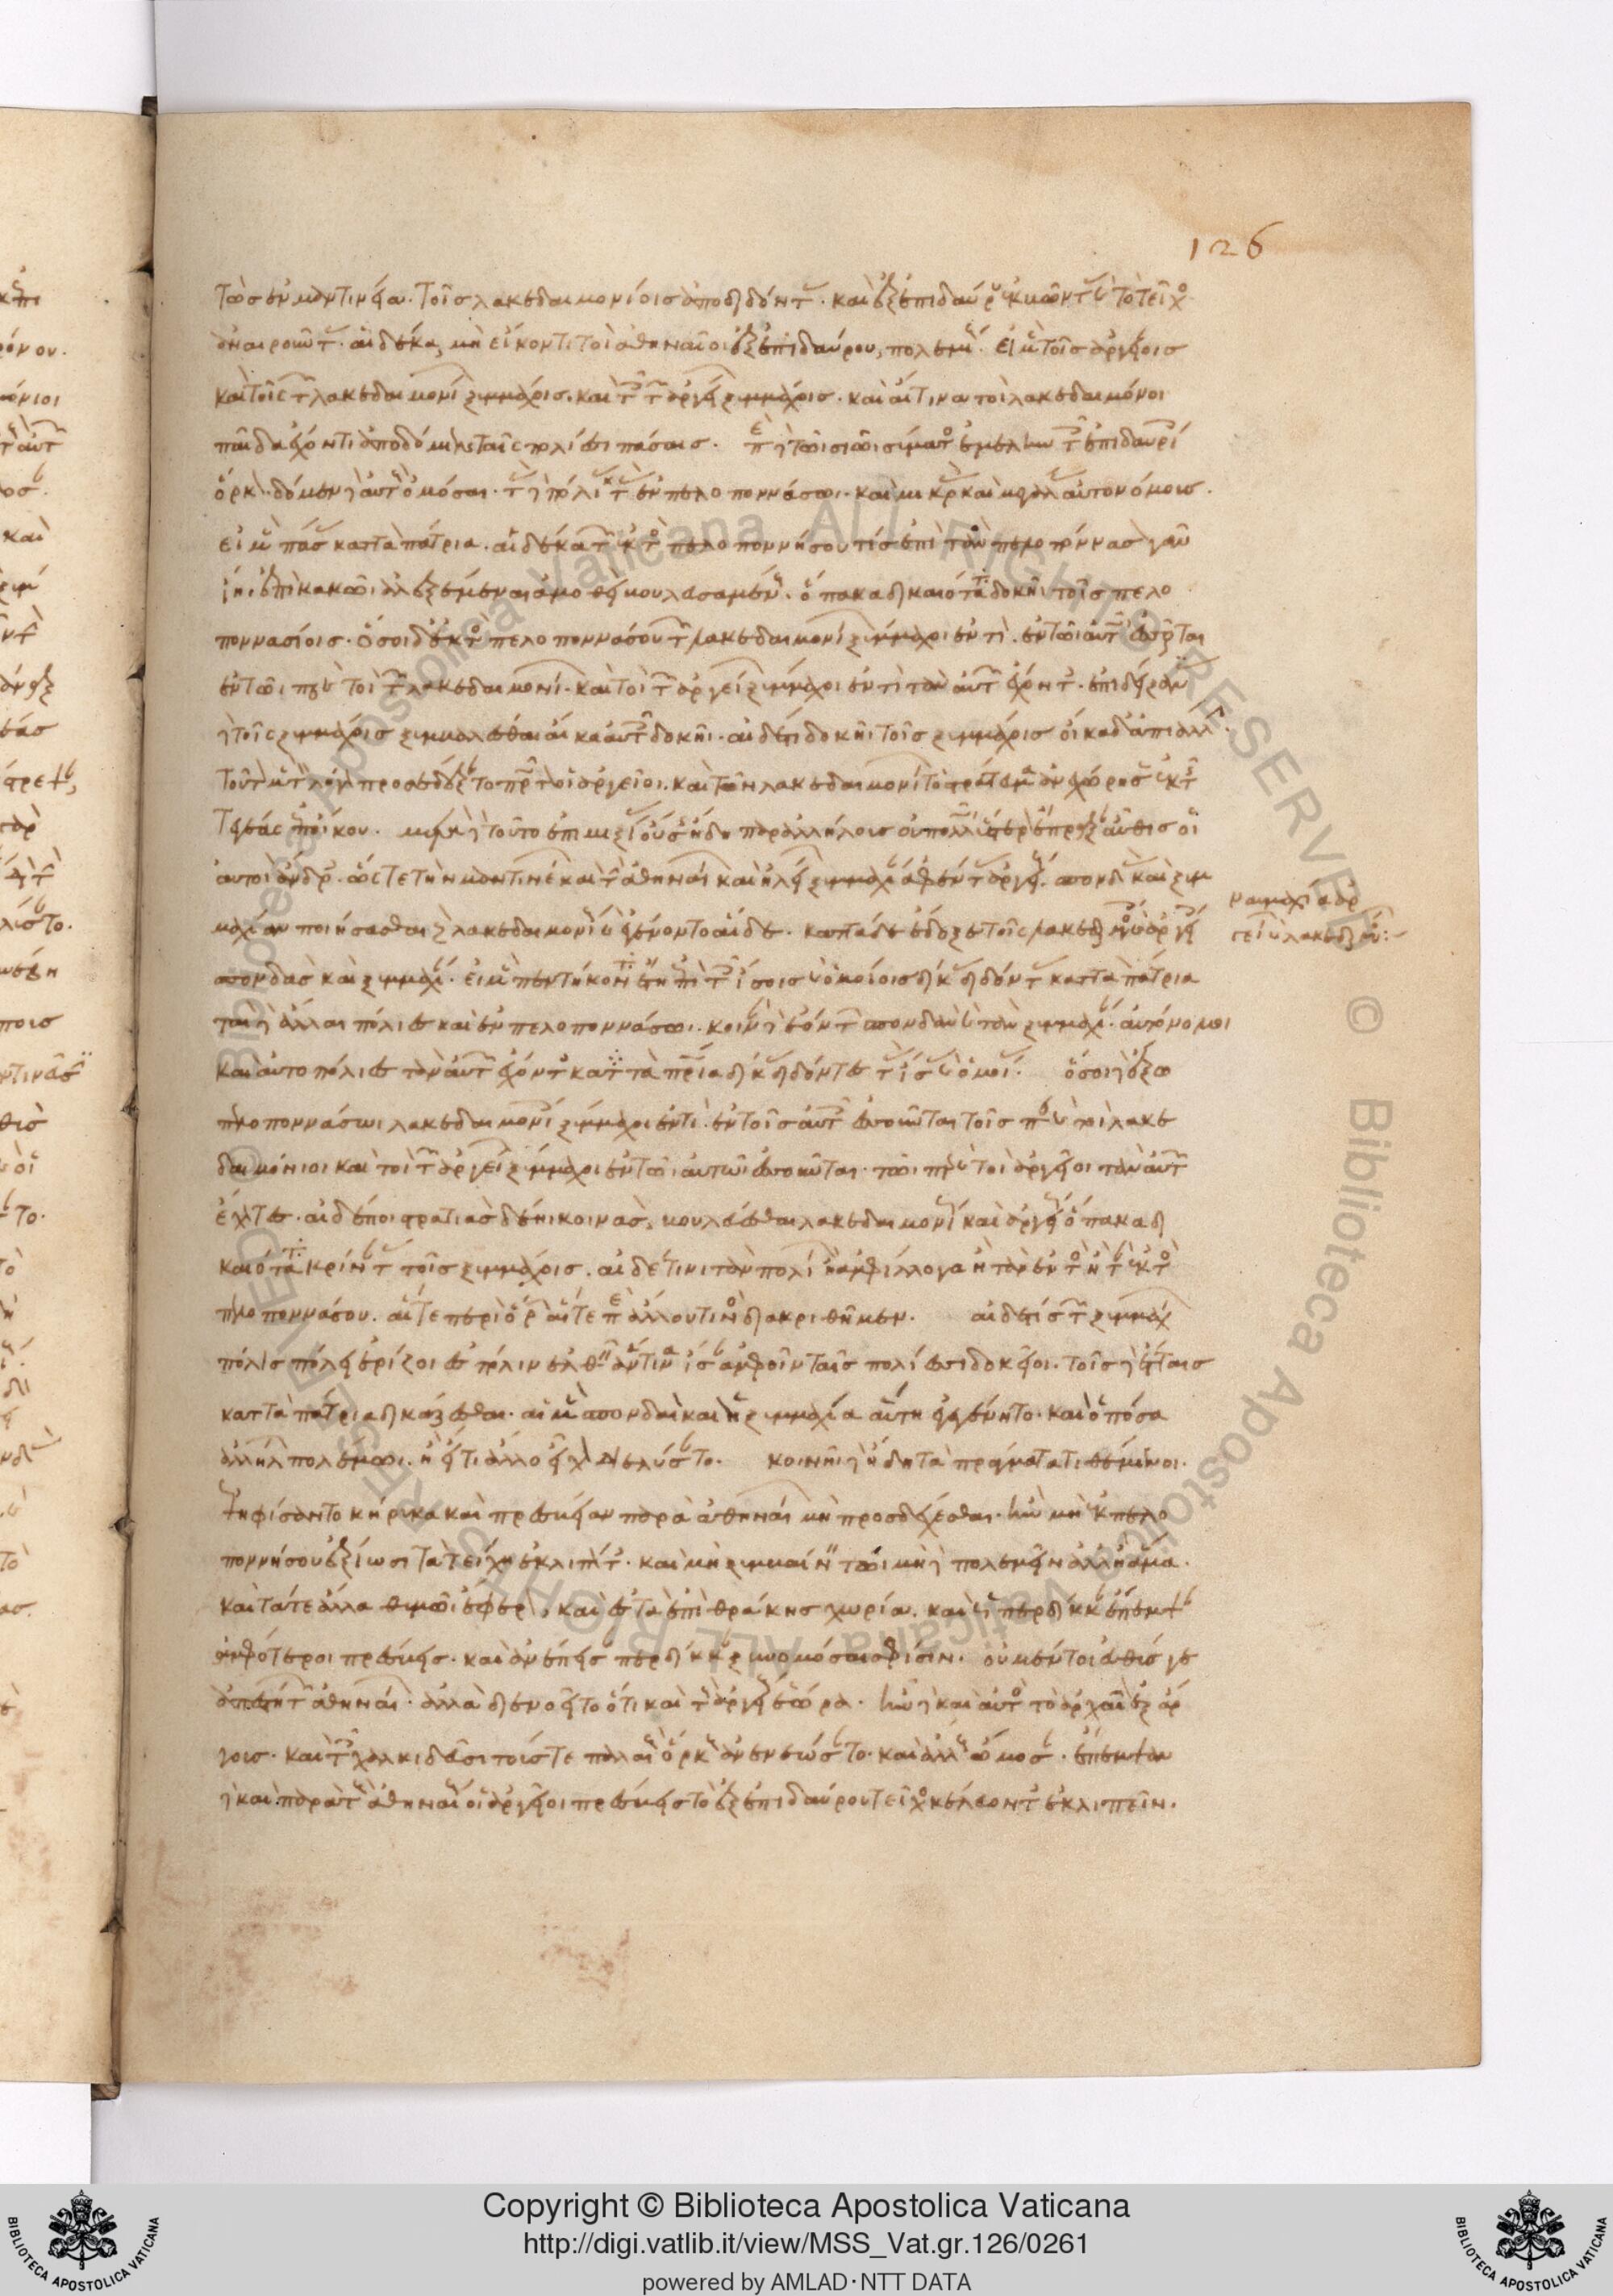 126
τὼσ ἐν μαντινέα. τοῖσ λακεδαιμονίοισ ἀποδιδόντασ. καὶ ἐξ ἐπιδαύρω ἐκβῶντασ καὶ τὸ τεῖχοσ
ἀναιροῦντασ. αἰ δέ κα, μὴ εἴκοντι τοὶ ἀθηναῖοι ἐξ ἐπιδαύρου, πολεμίουσ εἶμεν τοῖσ ἀργείοισ
καὶ τοῖς τῶν λακεδαιμονίων ξυμμάχοισ. καὶ τοῖσ τῶν ἀργείων ξυμμάχοισ. καὶ αἴ τινα τοὶ λακεδαιμόνιοι
παῖδα ἔχοντι ἀποδόμεν ταῖς πολίεσι πάσαισ. περὶ δὲ τῶ σιῶ σύματοσ
ὅρκον. δόμεν δὲ αὐτοὺσ ὀμόσαι. τὰσ δὲ πόλιασ τὰσ ἐν πελοποννάσωι. καὶ μικρὰσ καὶ μεγάλασ αὐτονόμοισ.
εἶμεν πάσασ καττὰ πάτρια. αἰ δέ κα τῶν ἐκτὸσ πελοποννήσου τίσ ἐπὶ τὰν πελοπόννασον γᾶν
ἴηι ἐπὶ κακῶι ἀλεξέμεναι ἁμοθεὶ βουλευσαμένουσ. ὅπα κα δικαιότατα δοκῆι τοῖσ πελο
ποννασίοισ. ὅσοι δ' ἐκτὸσ πελοποννάσου τῶν λακεδαιμονίων ξύμμαχοι ἐντὶ. ἐν τῶι αὐτῶι ἐσοῦνται
ἐν τῶι περ καὶ τοὶ τῶν λακεδαιμονίων. καὶ τοὶ τῶν ἀργείων ξύμμαχοι ἐντὶ τὰν αὐτῶν ἔχοντεσ. ἐπιδείξαν
δὲ τοῖς ξυμμάχοισ ξυμβαλέσθαι αἴ κα αὐτοῖσ δοκῆι. αἰ δέ τι δοκῆι τοῖσ ξυμμάχοισ οἴκαδ' ἀπιάλλην.
τοῦτον μὲν τὸν λόγον προσεδέξαντο πρῶτον οἱ ἀργεῖοι. καὶ τῶν λακεδαιμονίων τὸ στράτευμα ἀνεχώρησεν ἐκ τῆσ
τεγέας ἐπ' οἴκου. μετὰ δὲ τοῦτο ἐπιμιξίασ οὔσησ ἤδη παρ' ἀλλήλουσ οὐ πολλῶι ὕστερον ἔπραξαν αὖθισ οἱ
αὐτοὶ ἄνδρεσ. ὥςτε τὴν μαντινέων καὶ τὴν ἀθηναίων καὶ ἠλείων ξυμμαχίαν ἀφέντασ ἀργείουσ. σπονδὰσ καὶ ξυμ
μαχίαν ποιήσασθαι πρὸσ λακεδαιμονίουσ καὶ ἐγένοντο αἵδε. καττάδε ἔδοξε τοῖς λακεδαιμονίοισ καὶ ἀργείοισ
σπονδὰσ καὶ ξυμμαχίαν εἶμεν πεντήκοντα ἔτη ἐπὶ τοῖσ ἴσοισ καὶ ὁμοίοισ δίκασ διδόντασ καττὰ πάτρια
ταὶ δὲ ἄλλαι πόλιεσ ταὶ ἐν πελοποννάσωι. κοινανεόντων τᾶν σπονδᾶν καὶ τᾶν ξυμμαχιᾶν. αὐτόνομοι
καὶ αὐτοπόλιεσ τὰν αὐτῶν ἔχοντεσ καττὰ πάτρια δίκασ διδόντεσ τὰσ ἴσασ καὶ ὁμοίασ. ὅσοι δὲ ἔξω
πελοποννάσωι λακεδαιμονίοισ ξύμμαχοι ἐντὶ. ἐν τοῖσ αὐτοῖσ ἐσσοῦνται τοῖσ περ καὶ τοὶ λακε
δαιμόνιοι καὶ τοὶ τῶν ἀργείων ξύμμαχοι ἐν τῶι αὐτῶι ἐσσοῦνται. τῶι περ καὶ τοὶ ἀργεῖοι τὰν αὐτῶν
ἔχοντεσ. αἰ δέ ποι στρατιᾶσ δέηι κοινᾶσ, βουλεύεσθαι λακεδαιμονίουσ καὶ ἀργείουσ ὅπα κα δι
καιότατα κρίναντασ τοῖσ ξυμμάχοισ. αἰ δέ τινι τᾶν πολίων ἦ ἀμφίλλογα ἢ τᾶν ἐντὸσ ἢ τᾶν ἐκτὸσ
πελοποννάσου. αἴτε περὶ ὅρων αἴτε περὶ ἄλλου τινὸσ διακριθῆμεν. αἰ δέ τισ τῶν ξυμμάχων
πόλισ πόλει ἐρίζοι ἐσ πόλιν ἐλθεῖν ἅντινα ἴσαν ἀμφοῖν ταῖσ πολίεσι δοκείοι. τοῖσ δὲ ἔταισ
καττὰ πάτρια δικάζεσθαι. αἱ μὲν σπονδαὶ καὶ ἡ ξυμμαχία αὕτη ἐγεγένητο. καὶ ὁπόσα
ἀλλήλων πολέμωι. ἢ εἴ τι ἄλλο εἶχον διελύσαντο. κοινῆι δὲ ἤδη τὰ πράγματα τιθέμενοι.
ἐψηφίσαντο κήρυκα καὶ πρεσβείαν παρὰ ἀθηναίων μὴ προσδέχεσθαι. ἢν μὴ ἐκ πελο
ποννήσου ἐξίωσι τὰ τείχη ἐκλιπόντεσ. καὶ μὴ ξυμβαίνειν τωι μηδὲ πολεμεῖν ἀλλ' ἢ ἅμα.
καὶ τά τε ἄλλα θυμῶι ἔφερον, καὶ ἐσ τὰ ἐπὶ θράκησ χωρία. καὶ ὡσ περδίκκαν ἔπεμψαν
ἀμφότεροι πρέσβεισ. καὶ ἀνέπεισαν περδίκκαν ξυνομόσαι σφίσιν. οὐ μέντοι εὐθύσ γε
ἀπέστη τῶν ἀθηναίων. ἀλλὰ διενοεῖτο ὅτι καὶ τοὺσ ἀργείουσ ἑώρα. ἦν δὲ καὶ αὐτὸσ τὸ ἀρχαῖον ἐξ ἄρ
γουσ. καὶ τοῖσ χαλκιδεῦσι τούσ τε παλαιοὺσ ὅρκουσ ἀνενεώσαντο. καὶ ἄλλουσ ὤμοσαν. ἔπεμψαν
δὲ καὶ παρὰ τοὺσ ἀθηναίουσ οἱ ἀργεῖοι πρέσβεισ τὸ ἐξ ἐπιδαύρου τεῖχοσ κελεύοντεσ ἐκλιπεῖν.